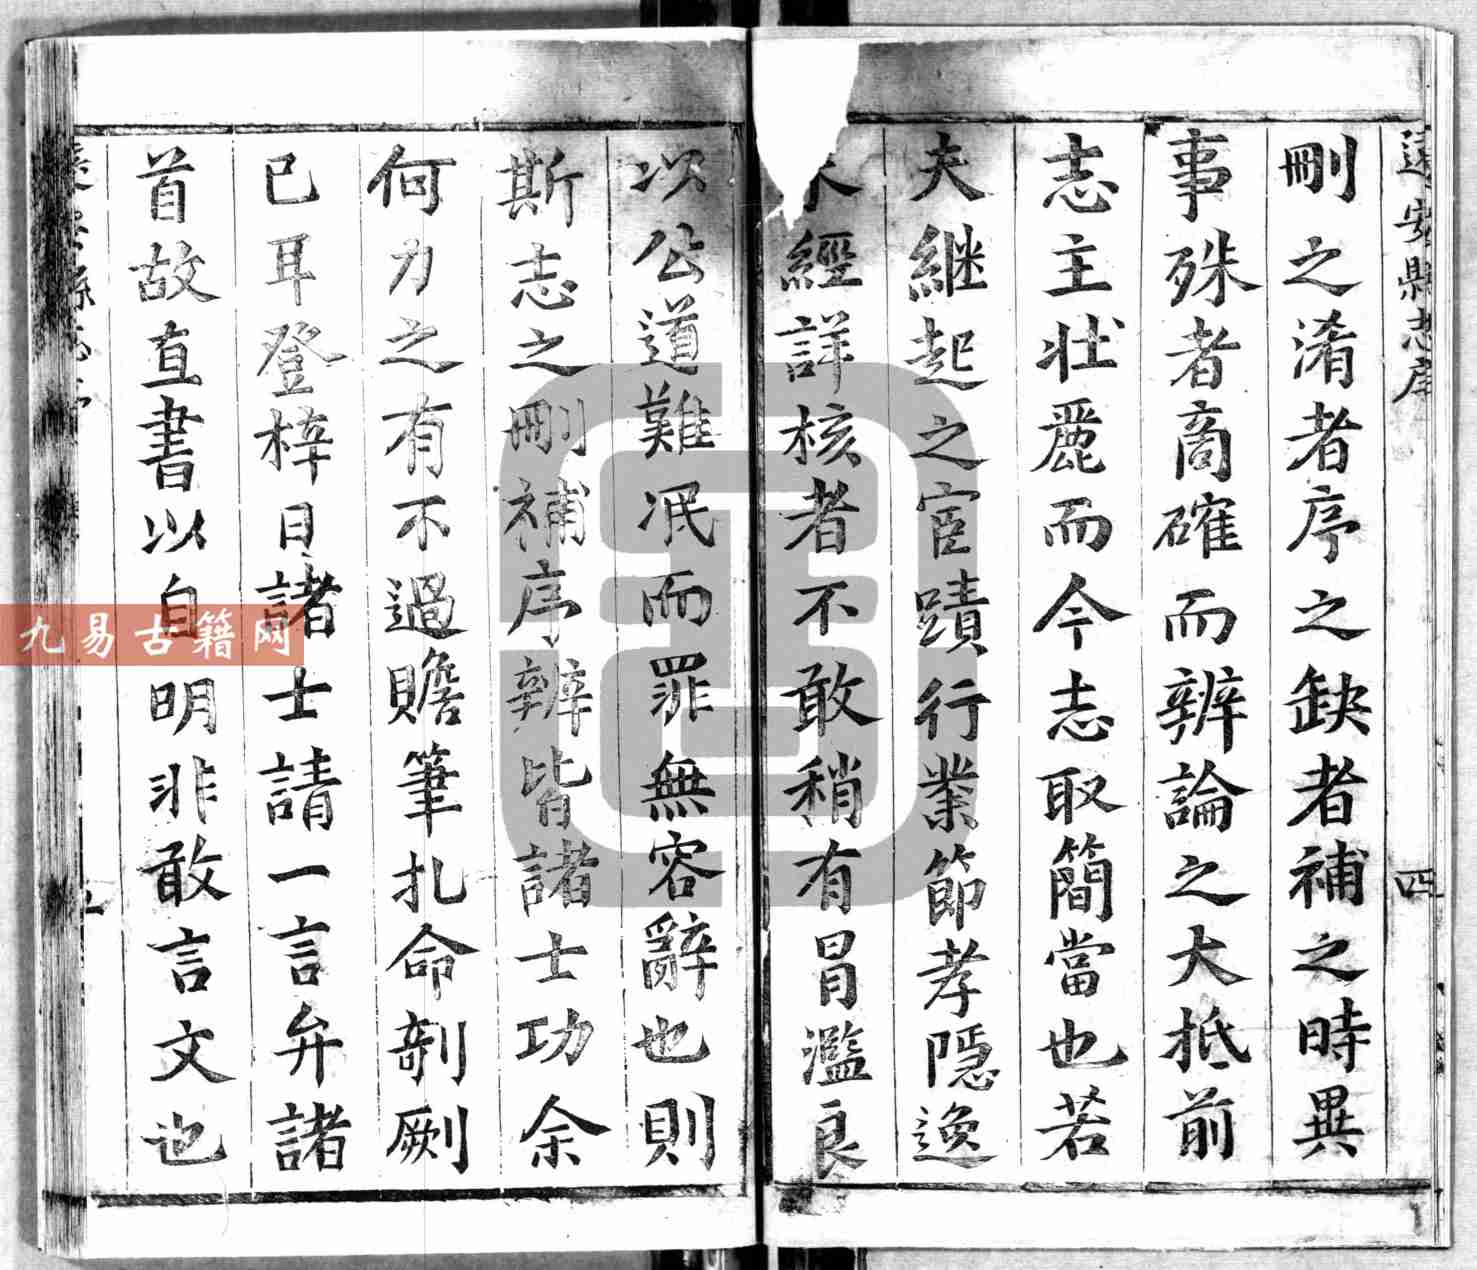 遠安縣志序
刪之淆者序之缺者補之時異
事殊者商確而辨論之大抵前
志主壯麗而今志取簡當也若
夫継起之宦蹟行業節孝隱逸
未經詳核者不敢稍有冐濫良
四
以公道難泯而罪無容辭也則
斯志之刪補序辨皆諸士功余
何力之有不過贍筆札命剞劂
已耳登梓日諸士請一言弁諸
首故直書以自明非敢言文也
九易古籍网